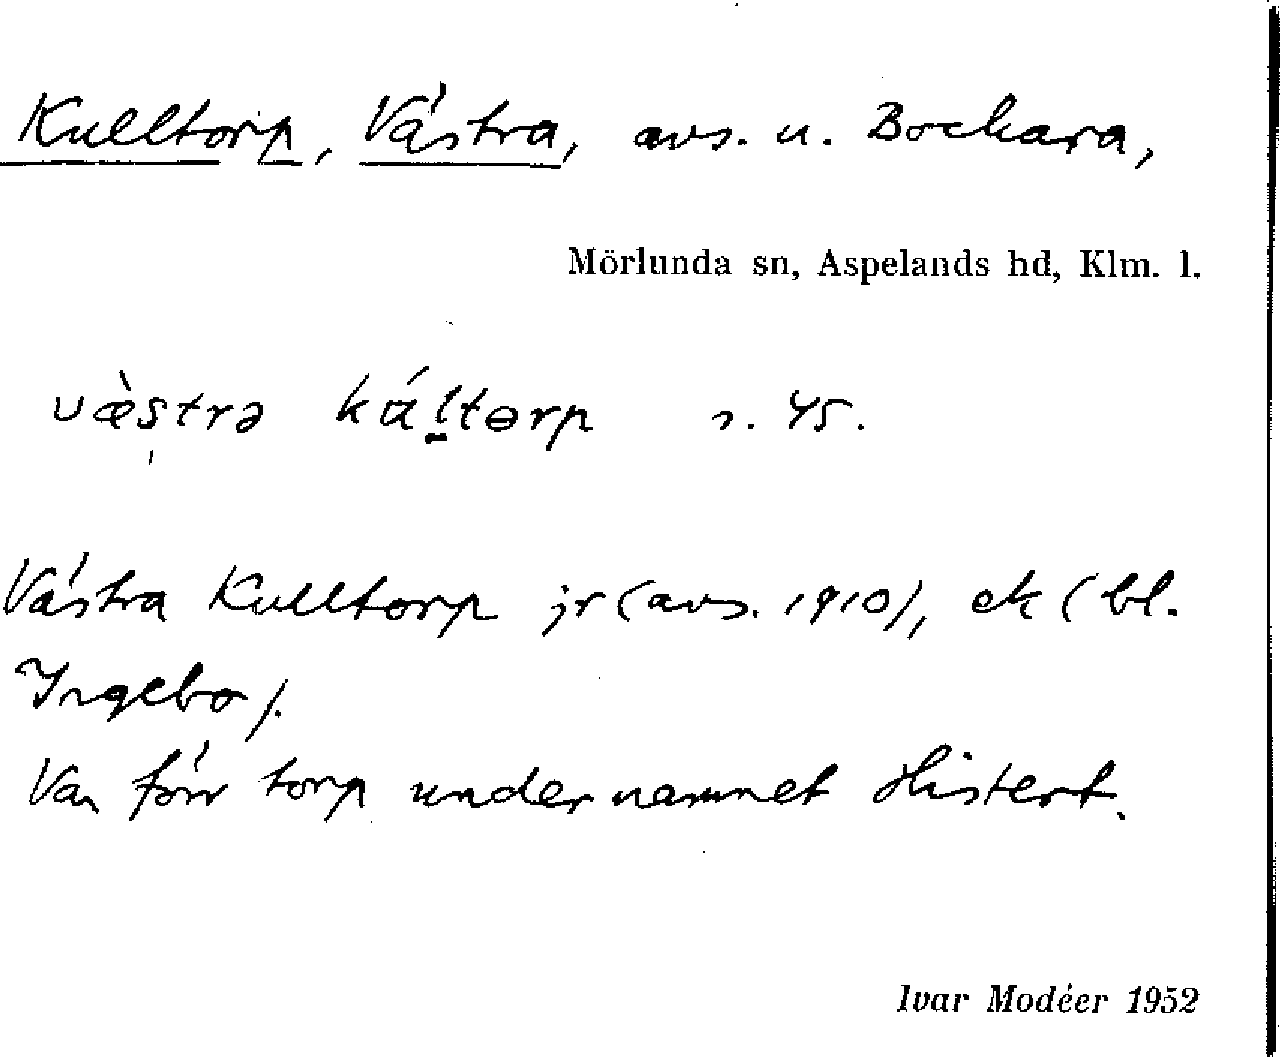 Kulltorp, Västra, avs. u. Bockara,
Mörlunda sn, Aspelands hd, Klm. l.
væ̀strə kɑ́ltɵrp s. 45.
Västra Kulltorp jr (avs. 1910), ek (bl.
Ingebo).
Var förr torp under namnet Histert.
Ivar Modéer 1952